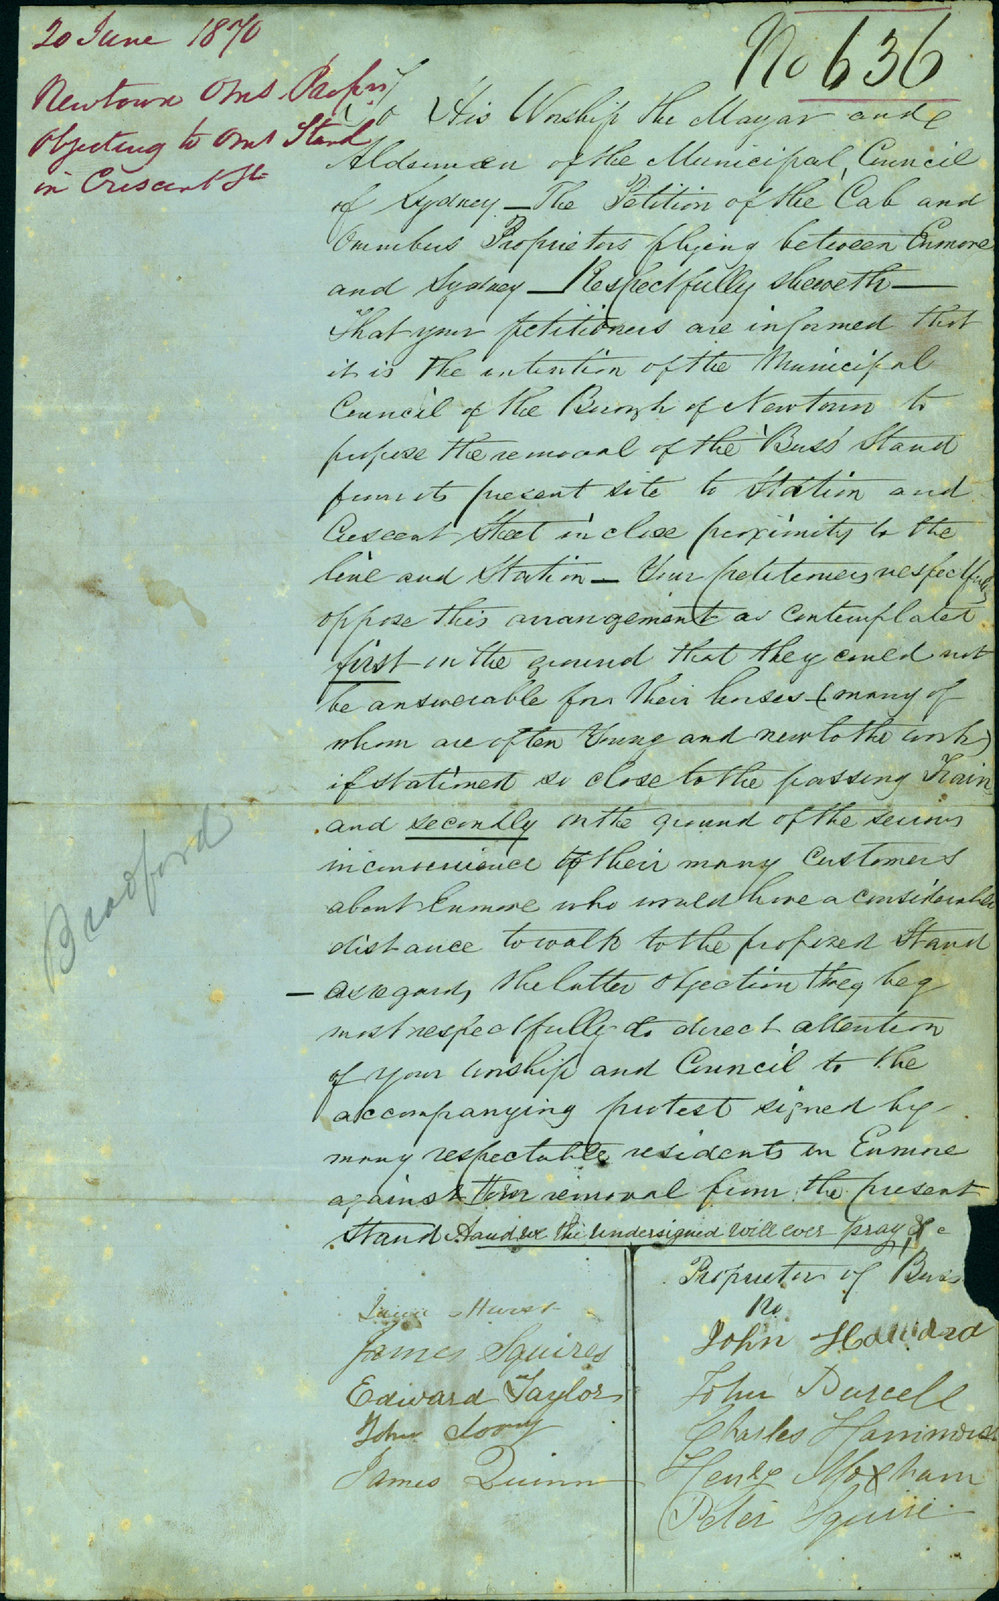 20 June 1870
No 636
Newtown Oms. Propr
Objecting to Oms Stand
in Crescent St
To His Worship the Mayor and
Aldermen of the Municipal Council
of Sydney — The Petition of the Cab and
Omnibus Proprietors plying between Enmore
and Sydney — Respectfully sheweth —
That your petitioners are informed that
it is the intention of the Municipal
Council of the Burogh of Newtown to
propose the removal of the 'Buss' Stand
from its present site to Station and
Crescent Street in close proximity to the
line and Station — Your petitioners respectfully
oppose this arrangement as contemplated
first on the ground that they could not
be answerable for their horses (many of
whom are often Young and new to the work)
if stationed so close to the passing Train
and secondly on the ground of the serious
inconvenience to their many Customers
about Enmore who would have a considerable
distance to walk to the proposed Stand
— As regards the latter objection they beg
most respectfully to direct attention
of your Worship and Council to the
accompanying protest signed by
many respectable residents in Enmore
against their removal from the present
Stand And we the undersigned will ever pray &c
Bradford
Proprietors of Buss
No
Hurst
James Squires
Edward Taylor
John
James Quinn
John Howard
John Purcell
Charles Hammond
Henry Moxham
Peter Squire